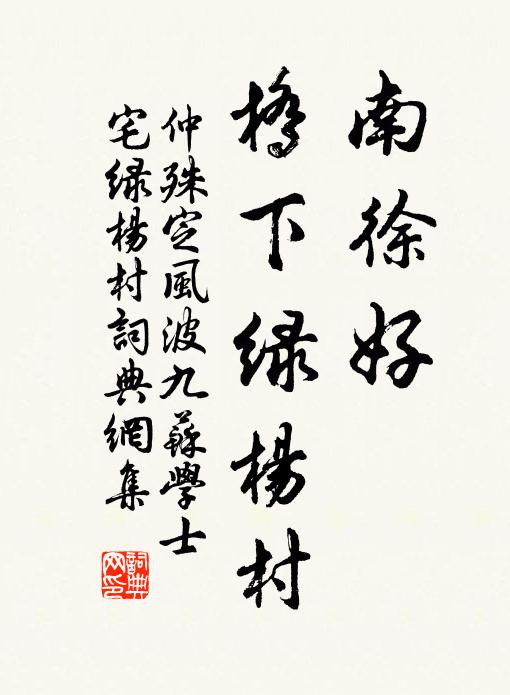 南徐好
橋下绿楊村
仲殊定風波九蘇學士
宅绿楊村詞典網集
詞典
网印